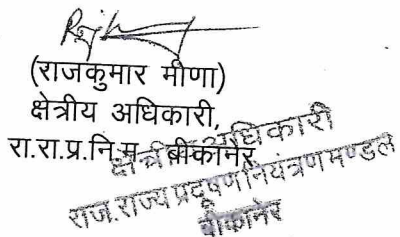 (राजकुमार मीणा)
क्षेत्रीय अधिकारी,
रा.रा.प्र.नि.म. बीकानेर
क्षेत्रीय अधिकारी
राज.राज्य प्रदूषण नियंत्रण मण्डल
बीकानेर